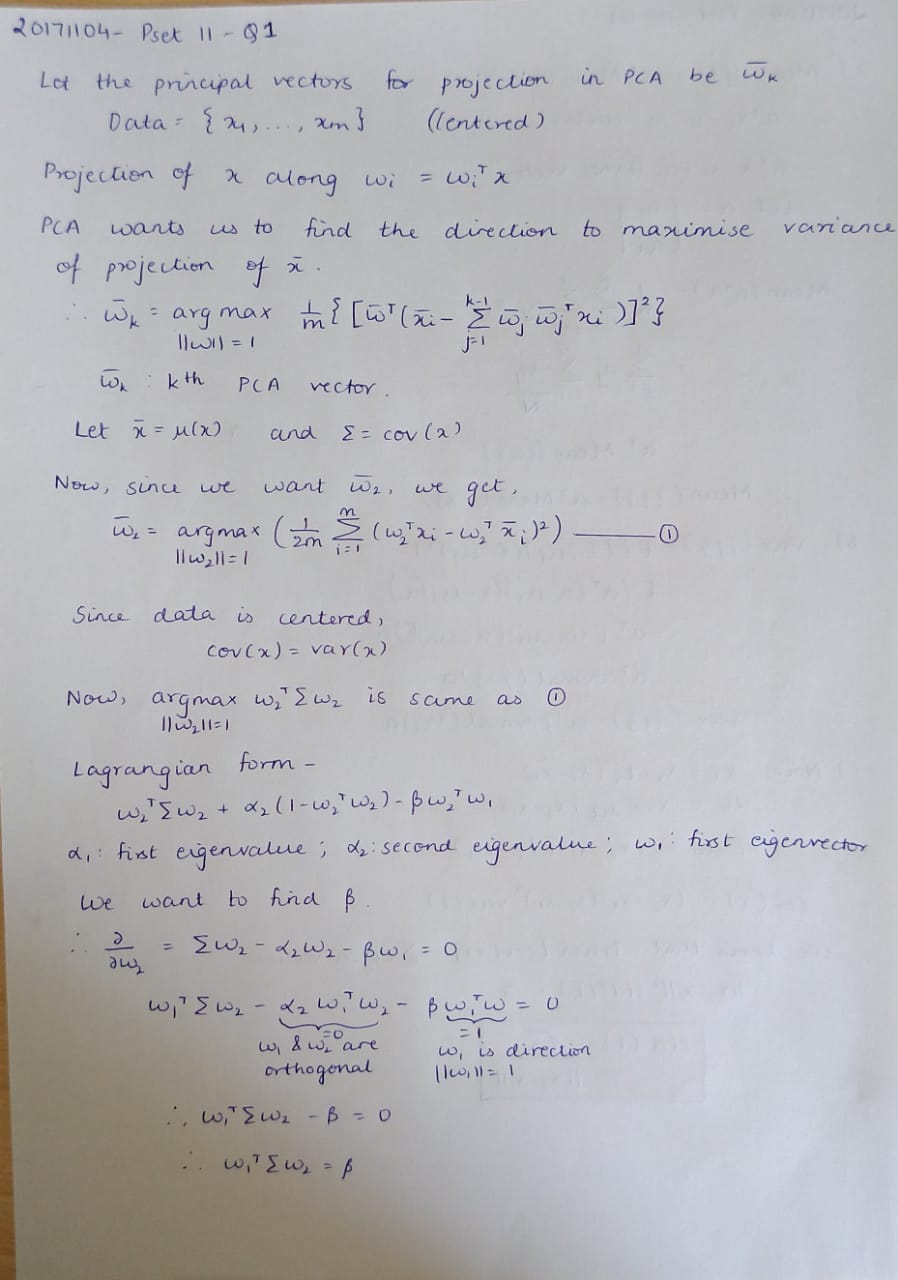 20171104 - Pset 11 - Q1
Let the principal vectors for projection in PCA be w̄ₖ
Data = { x₁, ..., xm } (Centered)
Projection of x along wi = wiᵀ x
PCA wants us to find the direction to maximise variance
of projection of x̄.
∴ w̄ₖ = arg max_{||w||=1} 1/m { [w̄ᵀ(x̄i - Σ_{j=1}^{k-1} w̄j w̄jᵀ xi)]² }
w̄ₖ : kth PCA vector.
Let x̄ = μ(x) and Σ = cov(x)
Now, since we want w̄₂, we get,
w̄₂ = argmax_{||w₂||=1} (1/2m Σ_{i=1}^{m} (w₂ᵀxi - w₂ᵀ x̄i)²) —— ①
Since data is centered,
cov(x) = var(x)
Now, argmax_{||w̄₂||=1} w₂ᵀ Σ w₂ is same as ①
Lagrangian form -
w₂ᵀ Σ w₂ + α₂ (1 - w₂ᵀ w₂) - β w₂ᵀ w₁
α₁ : first eigenvalue ; α₂ : second eigenvalue ; w₁ : first eigenvector
We want to find β.
∴ ∂/∂w₂ = Σw₂ - α₂w₂ - βw₁ = 0
w₁ᵀ Σ w₂ - α₂ w₁ᵀ w₂ - β w₁ᵀ w = 0
=0 =1
w₁ & w₂ are w₁ is direction
orthogonal ||w₁|| = 1
∴, w₁ᵀ Σ w₂ - β = 0
∴ w₁ᵀ Σ w₂ = β